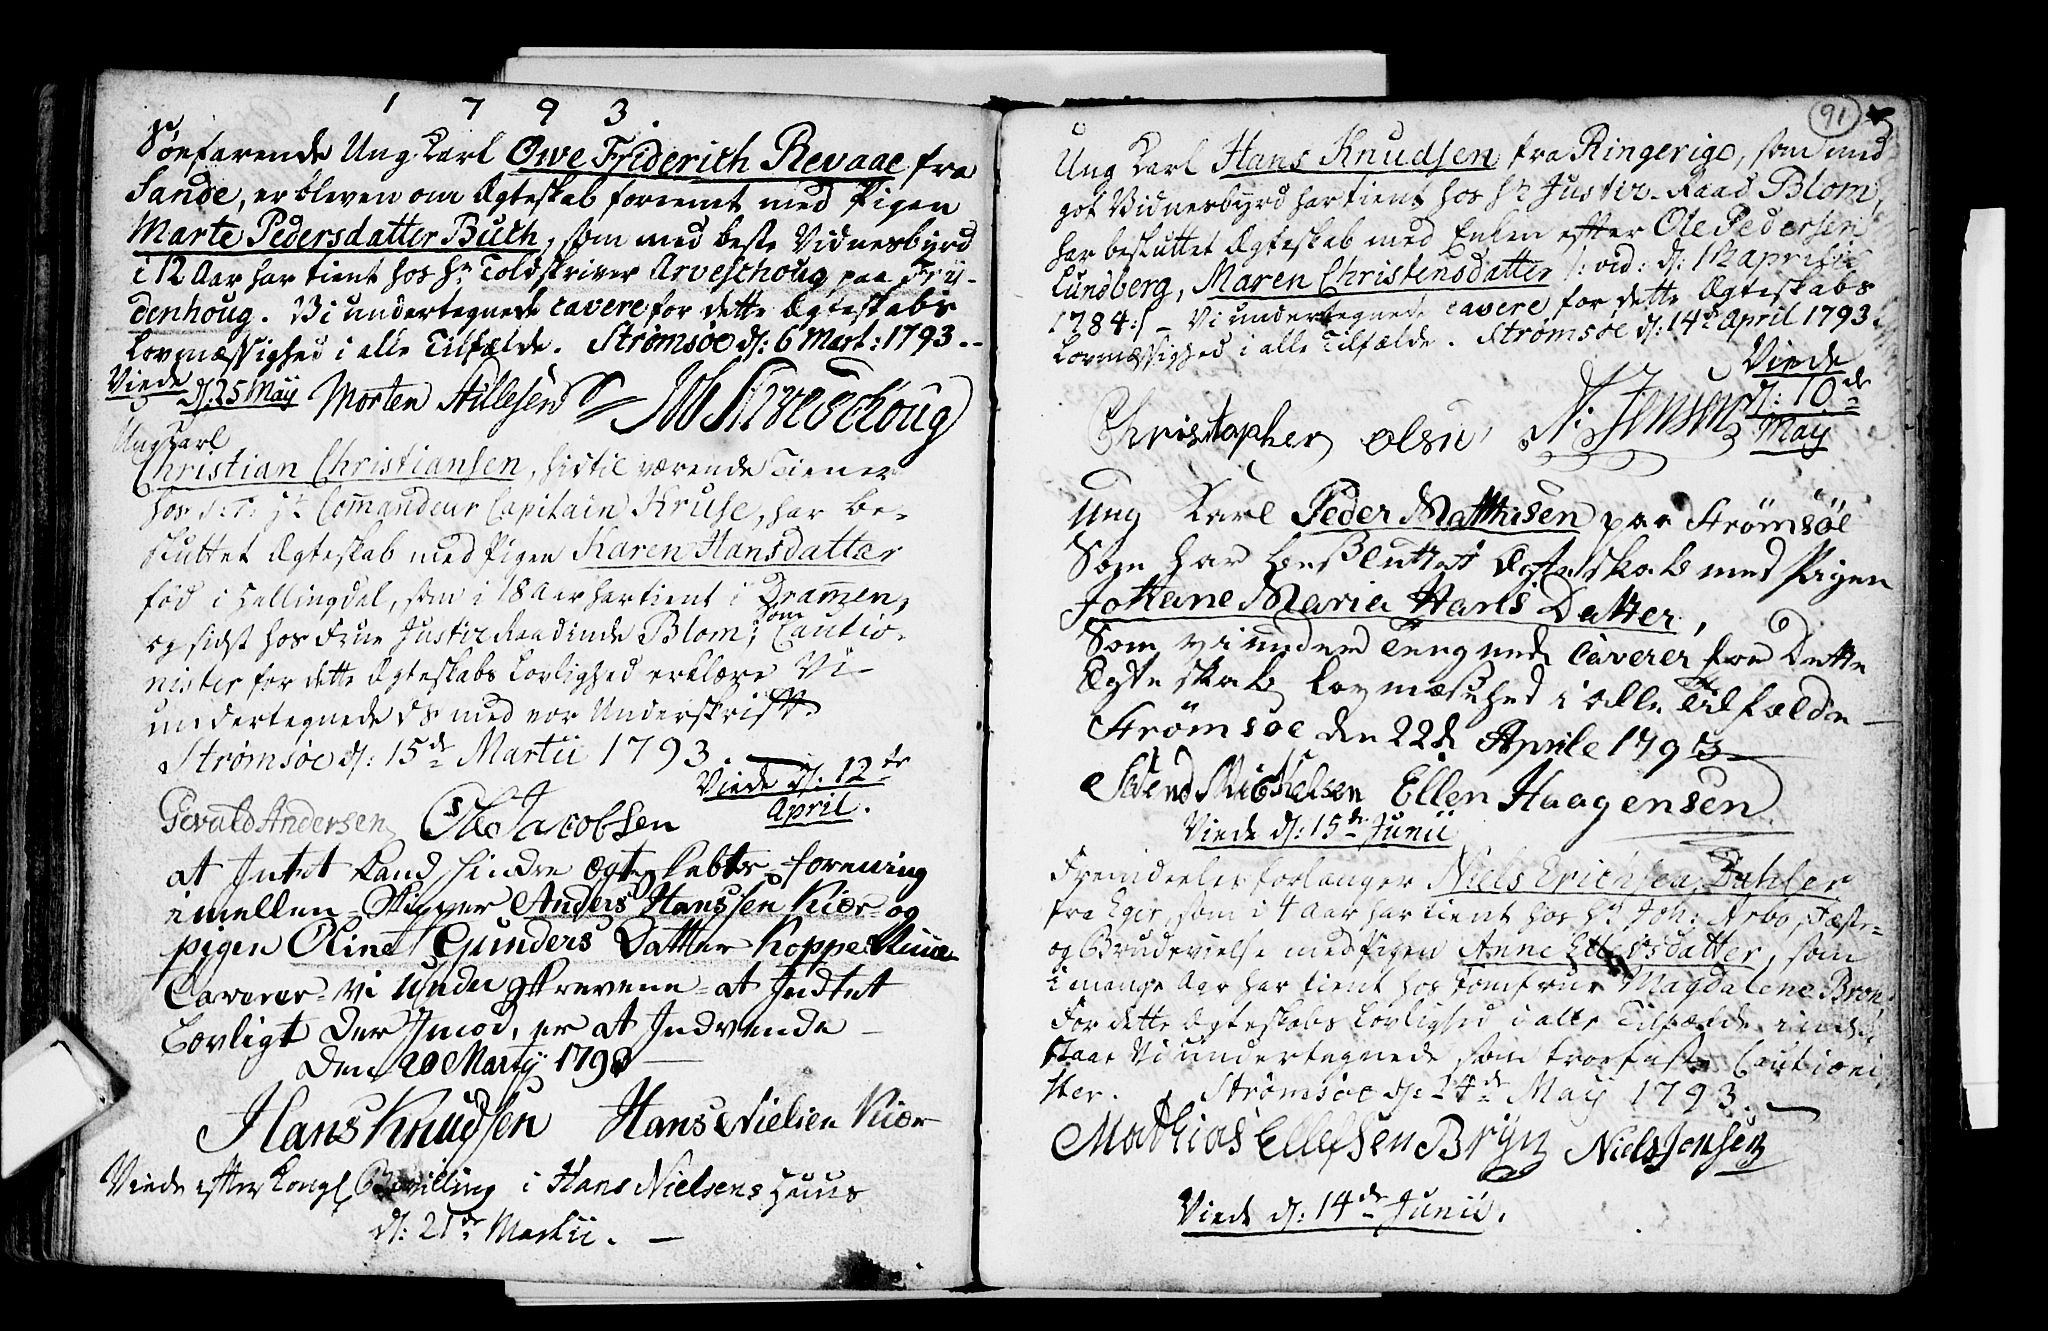 1793.
Søefarende Ung Karl Owe Friderich Revaae fra
Sande, er bleven om Ægteskab foreent med Pigen
Marte Pedersdatter Buch, som med beste Vidnesbyrd
i 12 Aar har tient hos Hr Toldskriver Arveschoug paa Fry-
denhoug. Vi undertegnede cavere for dette Ægteskabs
Lovmæssighed i alle Tilfælde. Strømsøe d: 6 Mart: 1793.
Viede d: 25 Maij Morten Hillesen Arveschoug
Ung Karl
Christian Christiansen, hidtil værende Tiener
hos S:T: Hr Commandeur Capitain Kruse, har be-
sluttet Ægteskab med Pigen Karen Hansdatter
fød i Hallingdal, som i 18 Aar har tient i Drammen,
og sidst hos Frue Justiz Raadinde Blom; Som Cautio-
nister for dette Ægteskabs Lovlighed erklære Vi
undertegnede os med vor Underskrift.
Strømsøe d: 15de Martii 1793.
Viede d: 12te
April.
Andersen Ole Jacobsen
at Intet Kand hindre Ægteskabets forening
imellem Skipper Anders Hanssen Kiær og
pigen Oline Gunders Datter Koppe
Caverer vi underskrevene at Indtet
Lovligt der Imod, er at Indvende
Den 20 Martij 1793
Hans Knudsen Hans Nielsen Kiær
Viede efter Kongl Bevilling i Hans Nielsens Huus
d: 21de Martii.
91
Ung Karl Hans Knudsen fra Ringerige, som med
got Vidnesbyrd har tient hos Hr Justiz-Raad Blom,
har besluttet Ægteskab med Enken efter Ole Pedersen
Lundberg, Maren Christensdatter /: vid: d: 12 Aprilis
1784 :/ Vi undertegnede cavere for dette Ægteskabs
Lovmæssighed i alle Tilfælde. Strømsøe d: 14de April 1793.
Viede
d: 10de
May
Christopher Olsen Jensen
Ung Karl Peder Matthisen paa Strømsøe
Som har besluttet Ægteskab med Pigen
Johane Maria Hans Datter,
Som vi under Tegnede caverer for Dette
Ægteskab Lovmæsihed i alle Tilfælde
Strømsøe den 22de Aprile 1793
Svend Mickelsen Ellen Haagensen
Viede d: 15de Junii
Fremdeeles forlanger Niels Erichsen Dahler
fra Eger, som i 4 Aar har tient hos Hr Joh: Arbo, Fæste-
og Brudevielse med Pigen Anne Ellevsdatter, som
i mange Aar har tient hos Jomfrue Magdalene Bron
For dette Ægteskabs Lovlighed i alle Tilfælde inde-
staae Vi undertegnede som troefaste Cautioni-
ster. Strømsøe d: 24de Maij 1793.
Mathias Ellefsen Bryn Niels Jensen
Viede d: 14de Junii.